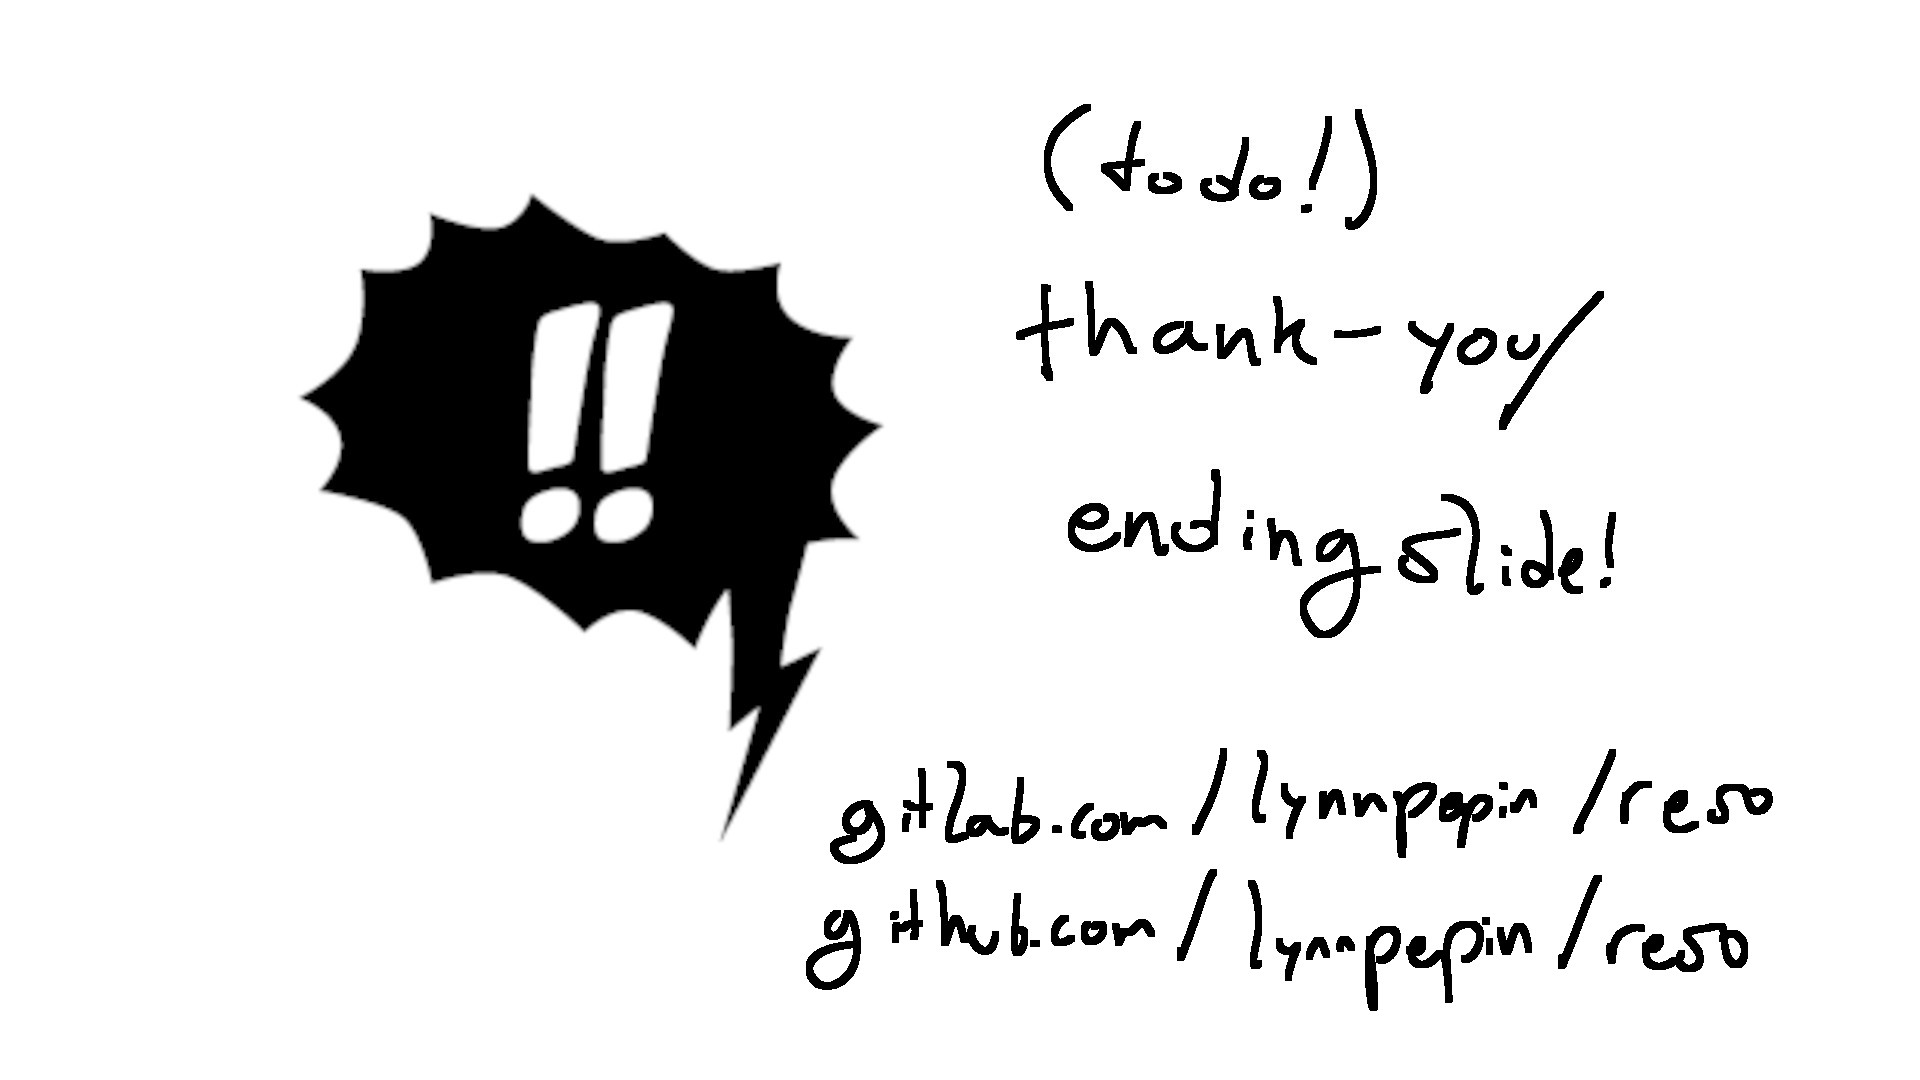 !!
(todo!)
thank-you/
ending slide!
gitlab.com/lynnpepin/reso
github.com/lynnpepin/reso